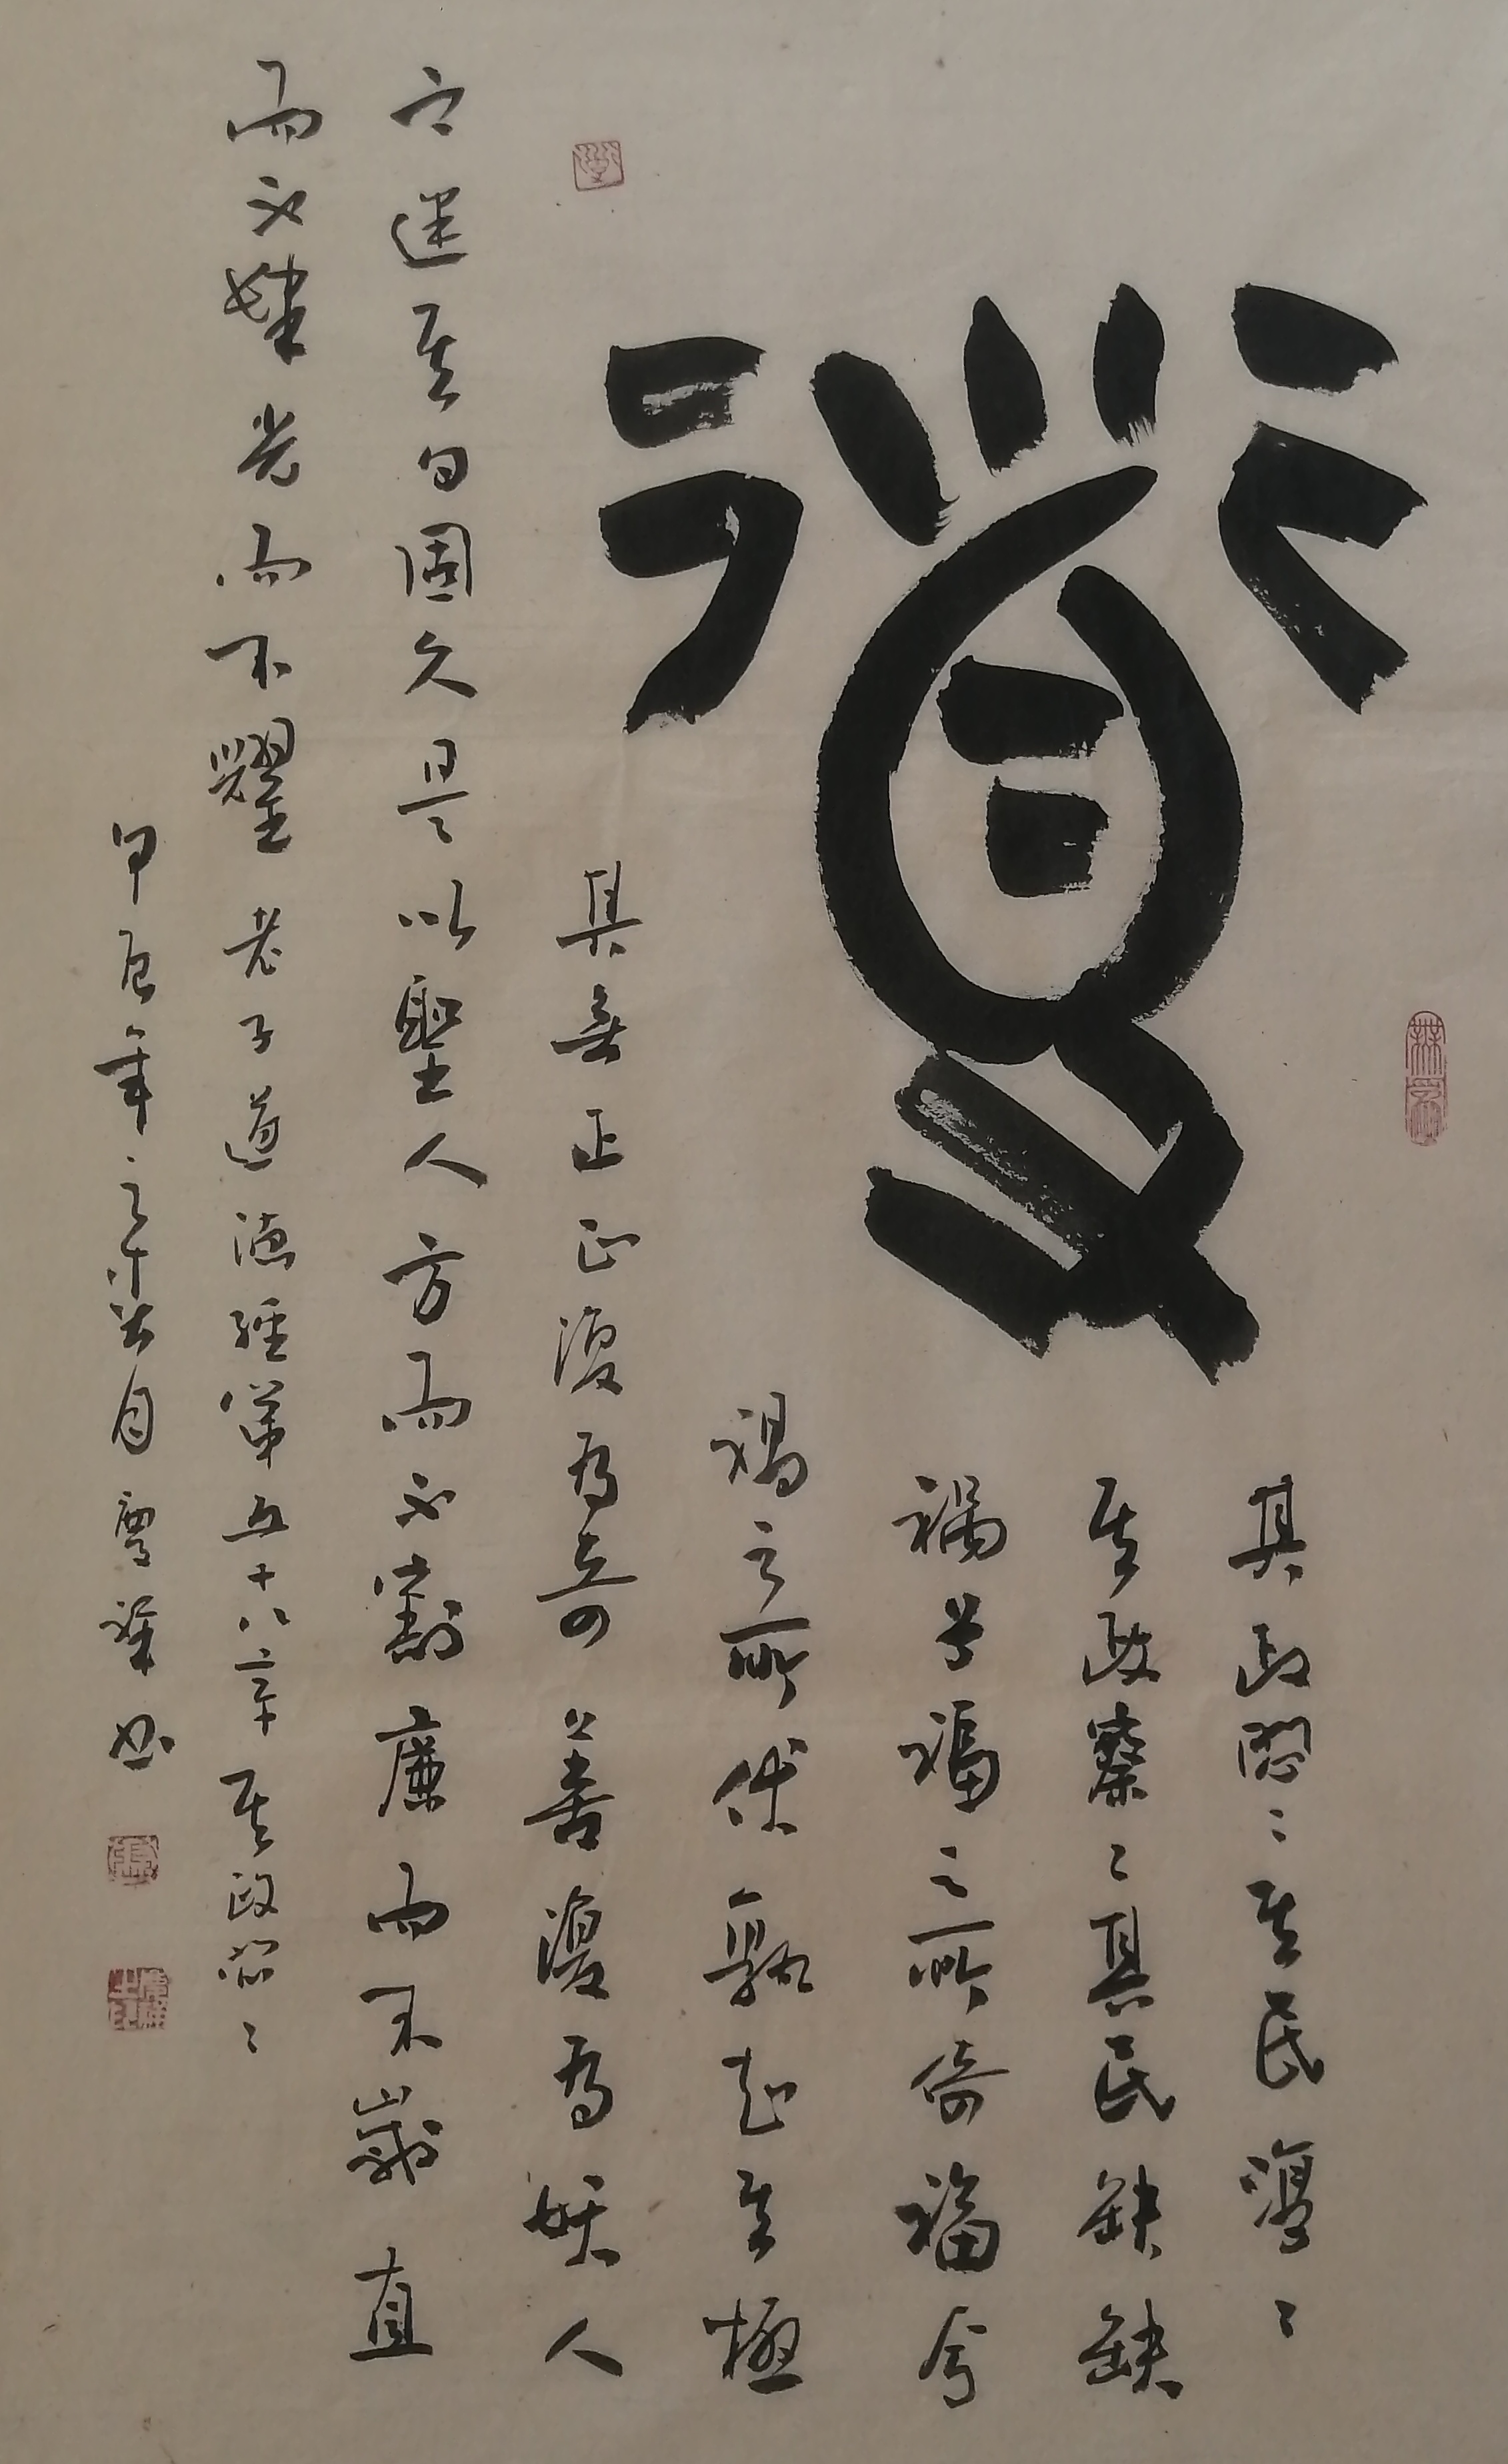 道
其政悶〻其民淳〻
其政察〻其民缺缺
禍兮福之所倚福兮
禍之所伏孰知其極
其無正正復為奇善復為妖人
之迷其日固久是以聖人方而不割廉而不劌直
而不肆光而不耀老子道德經第五十八章其政悶〻
甲辰年之月祥書